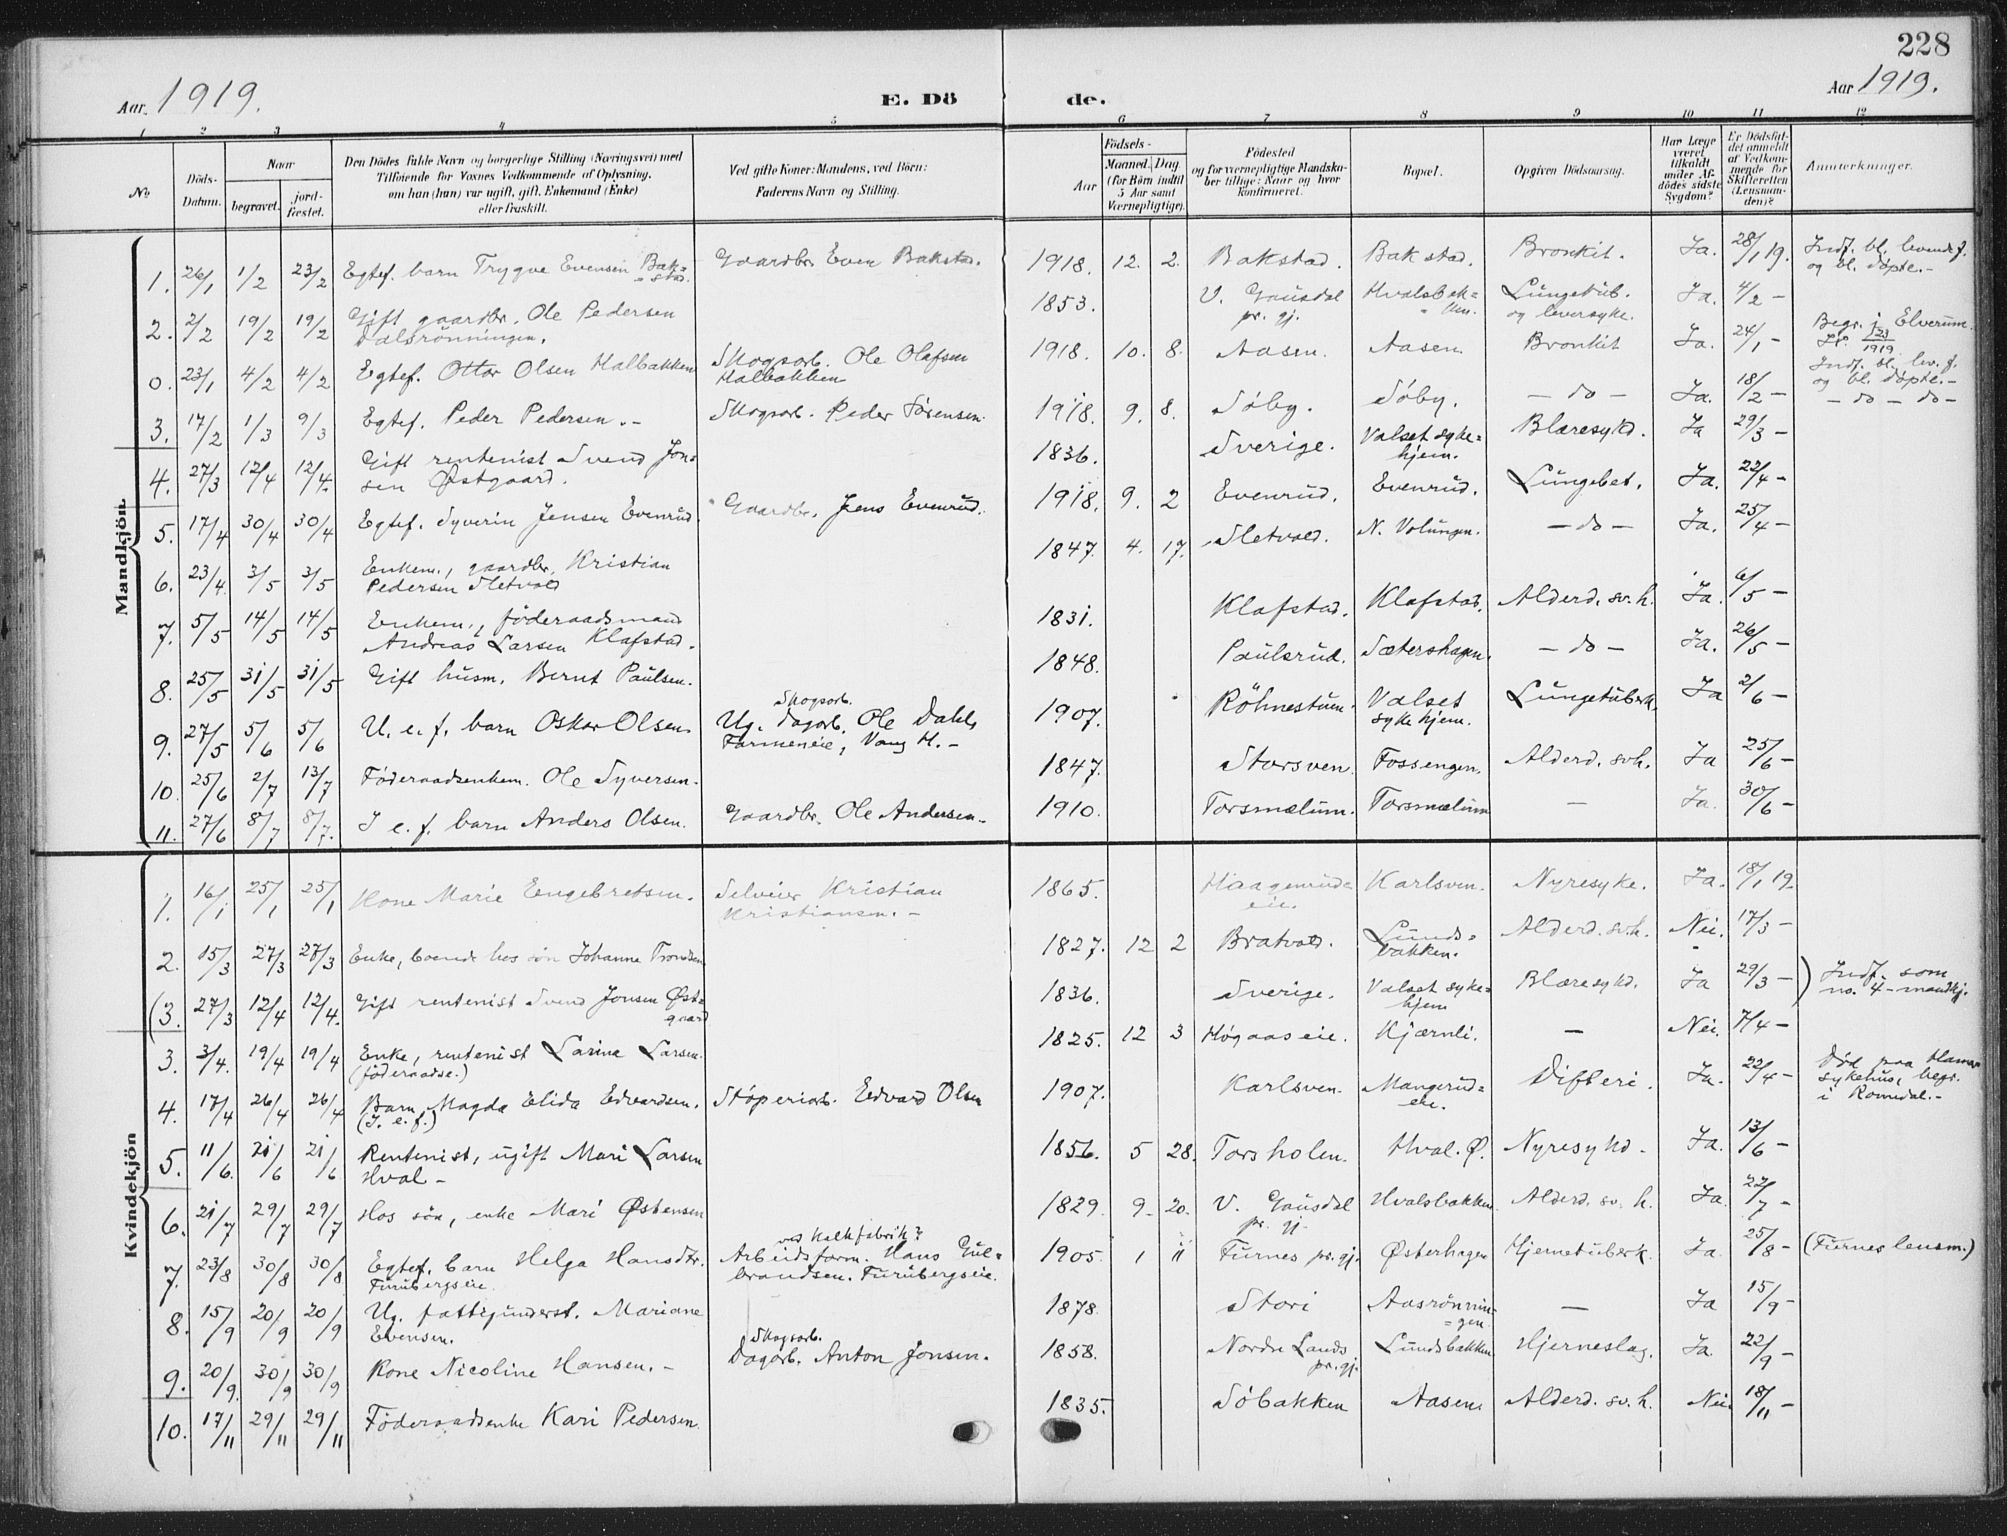 228
Aar 1919.
E. Dö
de.
Aar 1919.
1 2 3 4 5 6 7 8 9 10 11 12
No
Döds-Datum.
Naar
begravet.
jord-fæstet.
Den Dödes fulde Navn og borgerlige Stilling (Næringsvei) med
Tilföiende for Voxnes Vedkommende af Oplysning,
om han (hun) var ugift, gift, Enkemand (Enke)
eller fraskilt.
Ved gifte Koner: Mandens, ved Börn:
Faderens Navn og Stilling.
Födsels-
Aar
Maaned.
Dag.
(for Börn indtil
5 Aar samt
Værnepligtige).
Födested
og for værnepligtige Mandska-
ber tillige: Naar og hvor
konfirmeret.
Bopæl.
Opgiven Dödsaarsag.
Har Læge
været
tilkaldt
under Af-
dödes sidste
Sygdom?
Er Dödsfal-
det anmeldt
af Vedkom-
mende for
Skifteretten
(Lensman-
den)?
Anmerkninger.
Mandkjön.
1. 26/1 1/2 23/2 Egtef. barn Trygve Evensen Bak=stad. Gaardbr. Even Bakstad. 1918. 12. 2. Bakstad. Bakstad. Bronkit. Ja. 28/1 19. Indf. bl. levende f. og bl. døpte.-
2. 2/2 19/2 19/2 Gift gaardbr. Ole Pedersen Dalsrönningen. 1853. V. Gausdal pr. gj. Hvalsbak=ken. Lungetub. og leversyke. Ja. 4/2 -
0. 23/1 4/2 4/2 Egtef. Ottar Olsen Halbakken Skogsarb. Ole Olafsen Halbakken 1918. 10. 8. Aasen. Aasen. Bronkit Ja. 24/1 - Begr. i Elverum. 1/23 1919 Indf. bl. lev. f. og bl. døpte.-
3. 17/2 1/3 9/3 Egtef. Peder Pedersen.- Skogsarb. Peder Sörensen. 1918. 9. 8. Söby. Söby. - do - Ja. 18/2 - - do - do -
4. 27/3 12/4 12/4. Gift rentenist Svend Jon=sen Østgaard. 1836. Sverige. Valset syke=hjem. Blæresykd. Ja 29/3 -
5. 17/4 30/4 30/4 Egtef. Syverin Jensen Evenrud. Gaardbr. Jens Evenrud. 1918. 9. 2 Evenrud. Evenrud. Lungebet. Ja. 22/4 -
6. 23/4 3/5 3/5 Enkem., gaardbr. Kristian Pedersen Sletvold 1847. 4. 17. Sletvold. N. Volungen. - do - Ja. 25/4 -
7. 5/5 14/5 14/5 Enkem., föderaadsmand Andreas Larsen Klafstad. 1831. Klafstad. Klafstad. Alderd. sv.h. Ja. 6/5 -
8. 25/5 31/5 31/5 Gift husm. Bernt Paulsen. 1848. Paulsrud. Sætershagen. - do - Ja. 26/5 -
9. 27/5 5/6 5/6 U. e. f. barn Oskar Olsen. Ug. Skogsarb. Dagarb. Ole Dahl, Farmeneie, Vang H.- 1907. Röhnestuen. Valset sykehjem. Lungetuberk. Ja 2/6 -
10. 25/6 2/7 13/7 Föderaadsenkem. Ole Syversen. 1847. Storsven. Fossengen. Alderd. svh. Ja 25/6 -
11. 27/6 8/7 8/7. I e. f. barn Anders Olsen. Gaardbr. Ole Andersen. 1910. Torsmælum. Torsmælum - Ja. 30/6 -
Kvindekjön
1. 16/1 25/1 25/1 Kone Marie Engebretsen. Selveier Kristian Kristiansen.- 1865. Haagenrud=eie. Karlsven. Nyresyke. Ja. 18/1 19.
2. 15/3 27/3 27/3 Enke, boende hos sön Johanne Trondsen 1827. 12 2 Bratvold. Lunds=bakken. Alderd. sv.h. Nei. 17/3 -
(3. 27/3 12/4 12/4. Gift rentenist Svend Jonsen Øst=gaard 1836. Sverige. Valset syke=hjem Blæresykd. Ja 29/3 - ) Indf. som no. 4 - mandkj.
3. 3/4. 19/4 19/4 Enke, rentenist Larine Larsen. (föderaadse.) 1825. 12 3 Høgaaseie. Kjærnli. - Nei. 7/4 -
4. 17/4 26/4 26/4 Barn Magda Elida Edvardsen. (I. e. f.) Stöperiarb. Edvard Olsen 1907. Karlsven. Mangerud=eie. Difteri. Ja. 22/4 - Død paa Hamar sykehus, begr. i Romedal.-
5. 11/6 21/6 21/6 Rentenist, ugift Mari Larsen Hval - 1856. 5 28. Torsholen. Hval. Ø. Nyresykd. Ja. 13/6 -
6. 21/7 29/7 29/7 Hos sön, enke Mari Østensen 1829. 9. 20. V. Gausdal pr. gj. Hvalsbakken. Alderd. sv. h. Ja. 22/7 -
7. 23/8 30/8 30/8 Egtef. barn Helga Hansdtr. Furubergseie. Arbeidsform. ved Kalkfabrik? Hans Gul=brandsen. Furubergseie. 1905. 1 11 Furnes pr. gj. Østerhagen Hjernetuberk. Ja. 25/8 - (Furnes lensm.)
8. 15/9 20/9 20/9 Ug. fattigunderst. Mariane Evensen. 1878. Stori Aasrönnin=gen. - Ja 15/9 -
9. 20/9. 30/9 30/9 Kone Nicoline Hansen.- Skogsarb. Dagarb. Anton Jonsen. 1858. Nordre Lands pr. gj. Lundsbakken. Hjerneslag. Ja. 22/9 -
10. 17/11 29/11 29/11 Föderaadsenke Kari Pedersen. 1835. Söbakken Aasen. Alderd. sv. h. Nei. 18/11 -